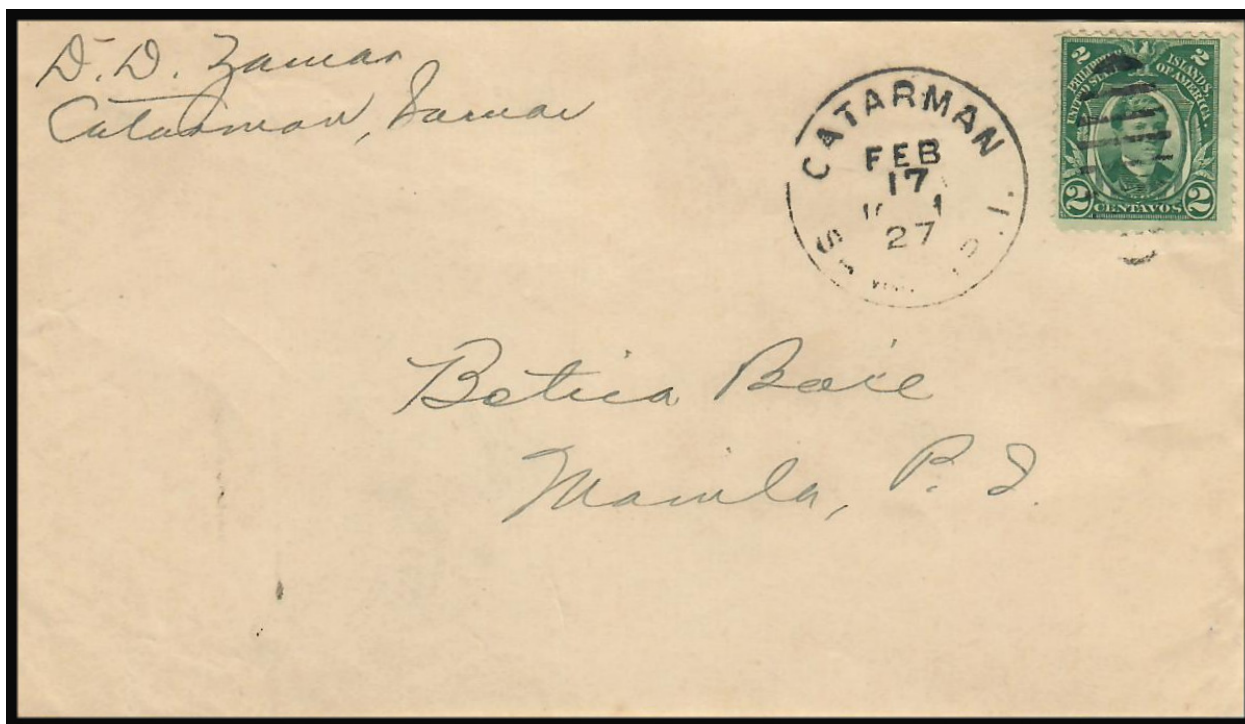 D. D. Zamar
Catarman, Samar
CATARMAN
FEB
17
27
P.I.
2 2
PHILIPPINE ISLANDS,
UNITED STATES OF AMERICA.
2 CENTAVOS 2
Botica Boie
Manila, P. I.